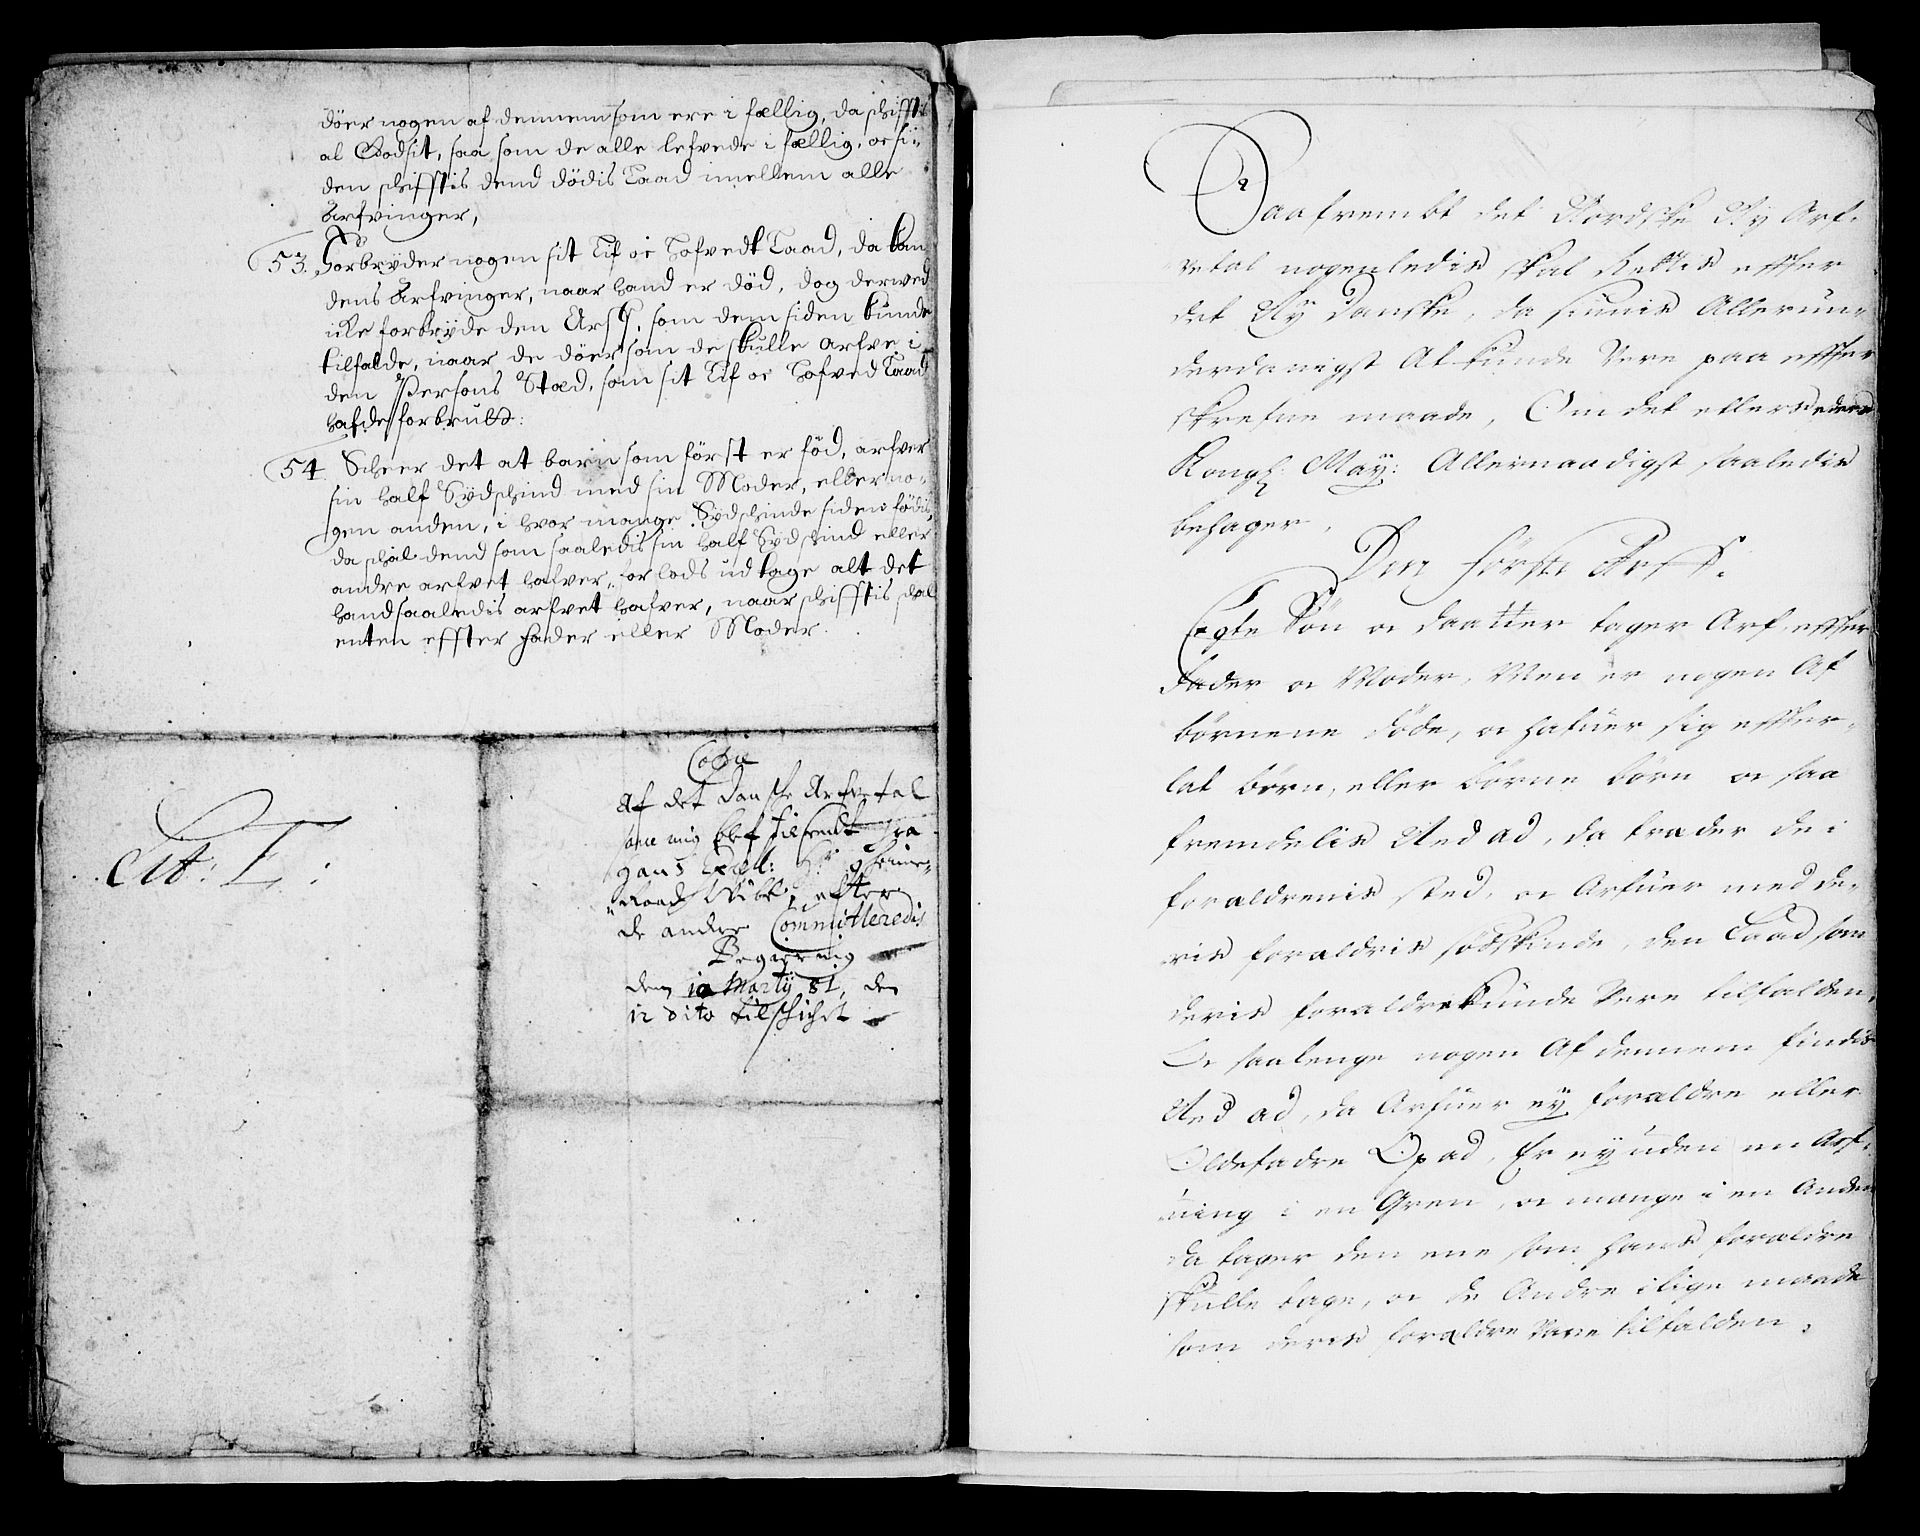 döer nogen af dennem som ere i fællig, da schifftis
al Godsit, saa som de alle lefvede i fællig, oc si-
den schifftis dend dödis Laad imellem alle
Arfvinger,
53. Forbryder nogen sit Lif oc Hofvedt Laad, da kan
dens Arfvinger, naar hand er död, dog derved
icke forbryde den Arff, som dem siden kunde
tilfalde, naar de döer som de skulle arfve i
den Persons Stæd, som sit Lif oc Hofved Laad
hafde forbrut:
54. Scheer det at barn som först er föd, arfver
sin half Sydschind med sin Moder, eller no-
gen anden, i hvor mange Sydschinde siden födis,
da schal dend som saaledis sin half Sydschind eller
andre arfvet hafver, forlods udtage alt det
hand saaledis arfvet hafver, naar schifftis schal
enten effter Fader eller Moder.
Lit: E:
Copie
Af det Danske Arfvetal
som mig blef tilsendt fra
Hans Excel: Hr
Raad Vibe, efter
de andre Committeredis
Begiering
den 10 Marty 81, den
12 dito tilschichet
Saafrembt det Nordske Ny Arf-
vetal nogenledis skal Rettis effter
det Ny Danske, da siunis Allerun-
derdanigst At kunde Vere paa effter
skrefne maade, Om det ellers eders
Kongl: May: Allernaadigst saaledis
behager.
Den förste Arff.
Egte Sön oc daatter tager Arf effter
Fader oc Moder, Men er nogen Af
börnene döde, oc hafuer sig effter-
lat börn, eller börne börn oc saa
fremdelis Ned ad, da træder de i
forældrenis sted, oc Arfuer med de-
ris forældris södskinde, den Laad som
deris forældre kunde Vere tilfalden,
Oc saalenge nogen Af dennem findis
Ned ad, da Arfuer ey forældre eller
Oldefædre Op ad, Er ey uden en Arf-
uing i en Gren, oc mange i en Anden
da tager den ene som hans forældre
skulle tage, oc de Andre i lige maade
som deris forældre Vare tilfalden.